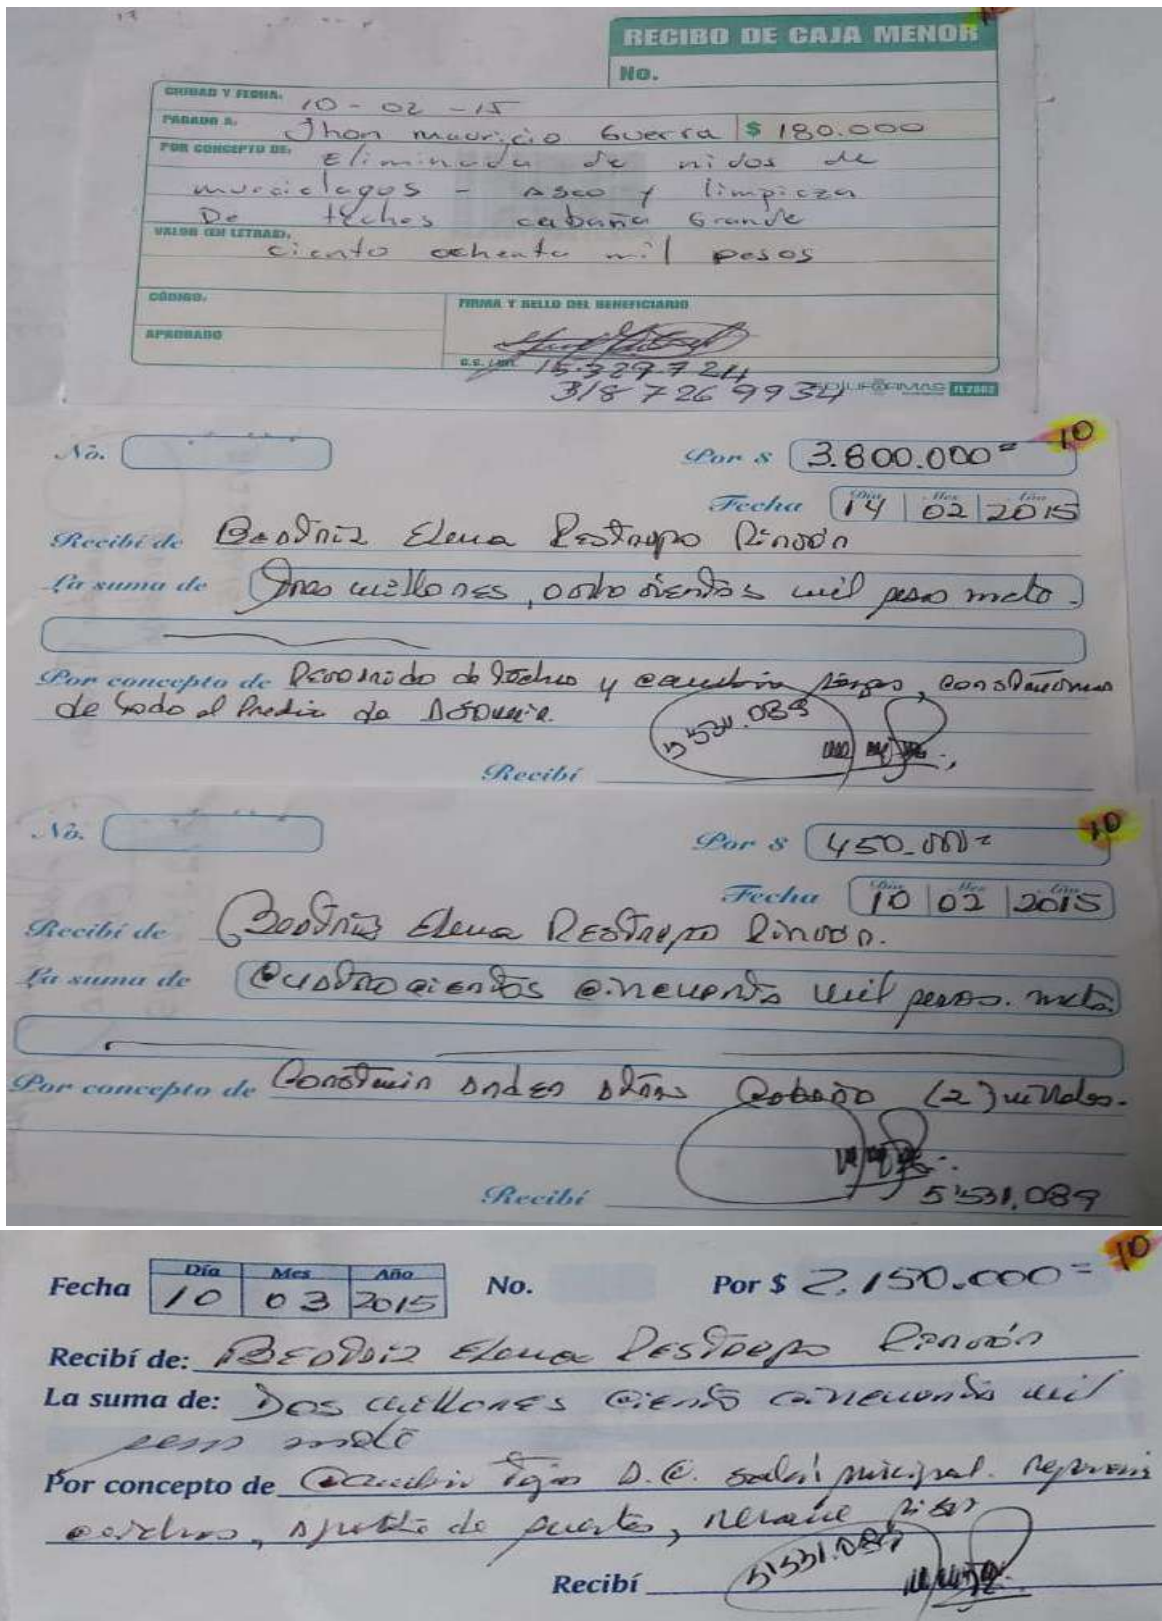 RECIBO DE CAJA MENOR
No.
CIUDAD Y FECHA. 10 - 02 - 15
PAGADO A. Jhon mauricio Guerra $ 180.000
POR CONCEPTO DE. Eliminada de nidos de
murcielagos - Aseo y limpieza
De techos cabaña Grande
VALOR (EN LETRAS). ciento ochenta mil pesos
CÓDIGO. FIRMA Y SELLO DEL BENEFICIARIO
APROBADO
15.329.724
318 726 9934
10
No. Por $ 3.800.000=
Fecha Día 14 Mes 02 Año 2015
Recibí de Beatriz Elena Restrepo Rincón
La suma de Tres millones, ochocientos mil pesos mcto.
Por concepto de de techos y cambiar tejas,
de todo el Predio
5'531.089
Recibí
10
No. Por $ 450.000=
Fecha Día 10 Mes 02 Año 2015
Recibí de Beatriz Elena Restrepo Rincón.
La suma de Cuatrocientos cincuenta mil pesos. mcto.
Por concepto de Construir anden atras Cabaña (2)
Recibí 5'531.089
10
Fecha Día 10 Mes 03 Año 2015 No. Por $ 2.150.000=
Recibí de: Beatriz Elena Restrepo Rincón
La suma de: Dos millones ciento cincuenta mil
pesos mcto
Por concepto de Cambiar Tejas A.C. salón principal.
de puertas, pisos
5'531.089
Recibí